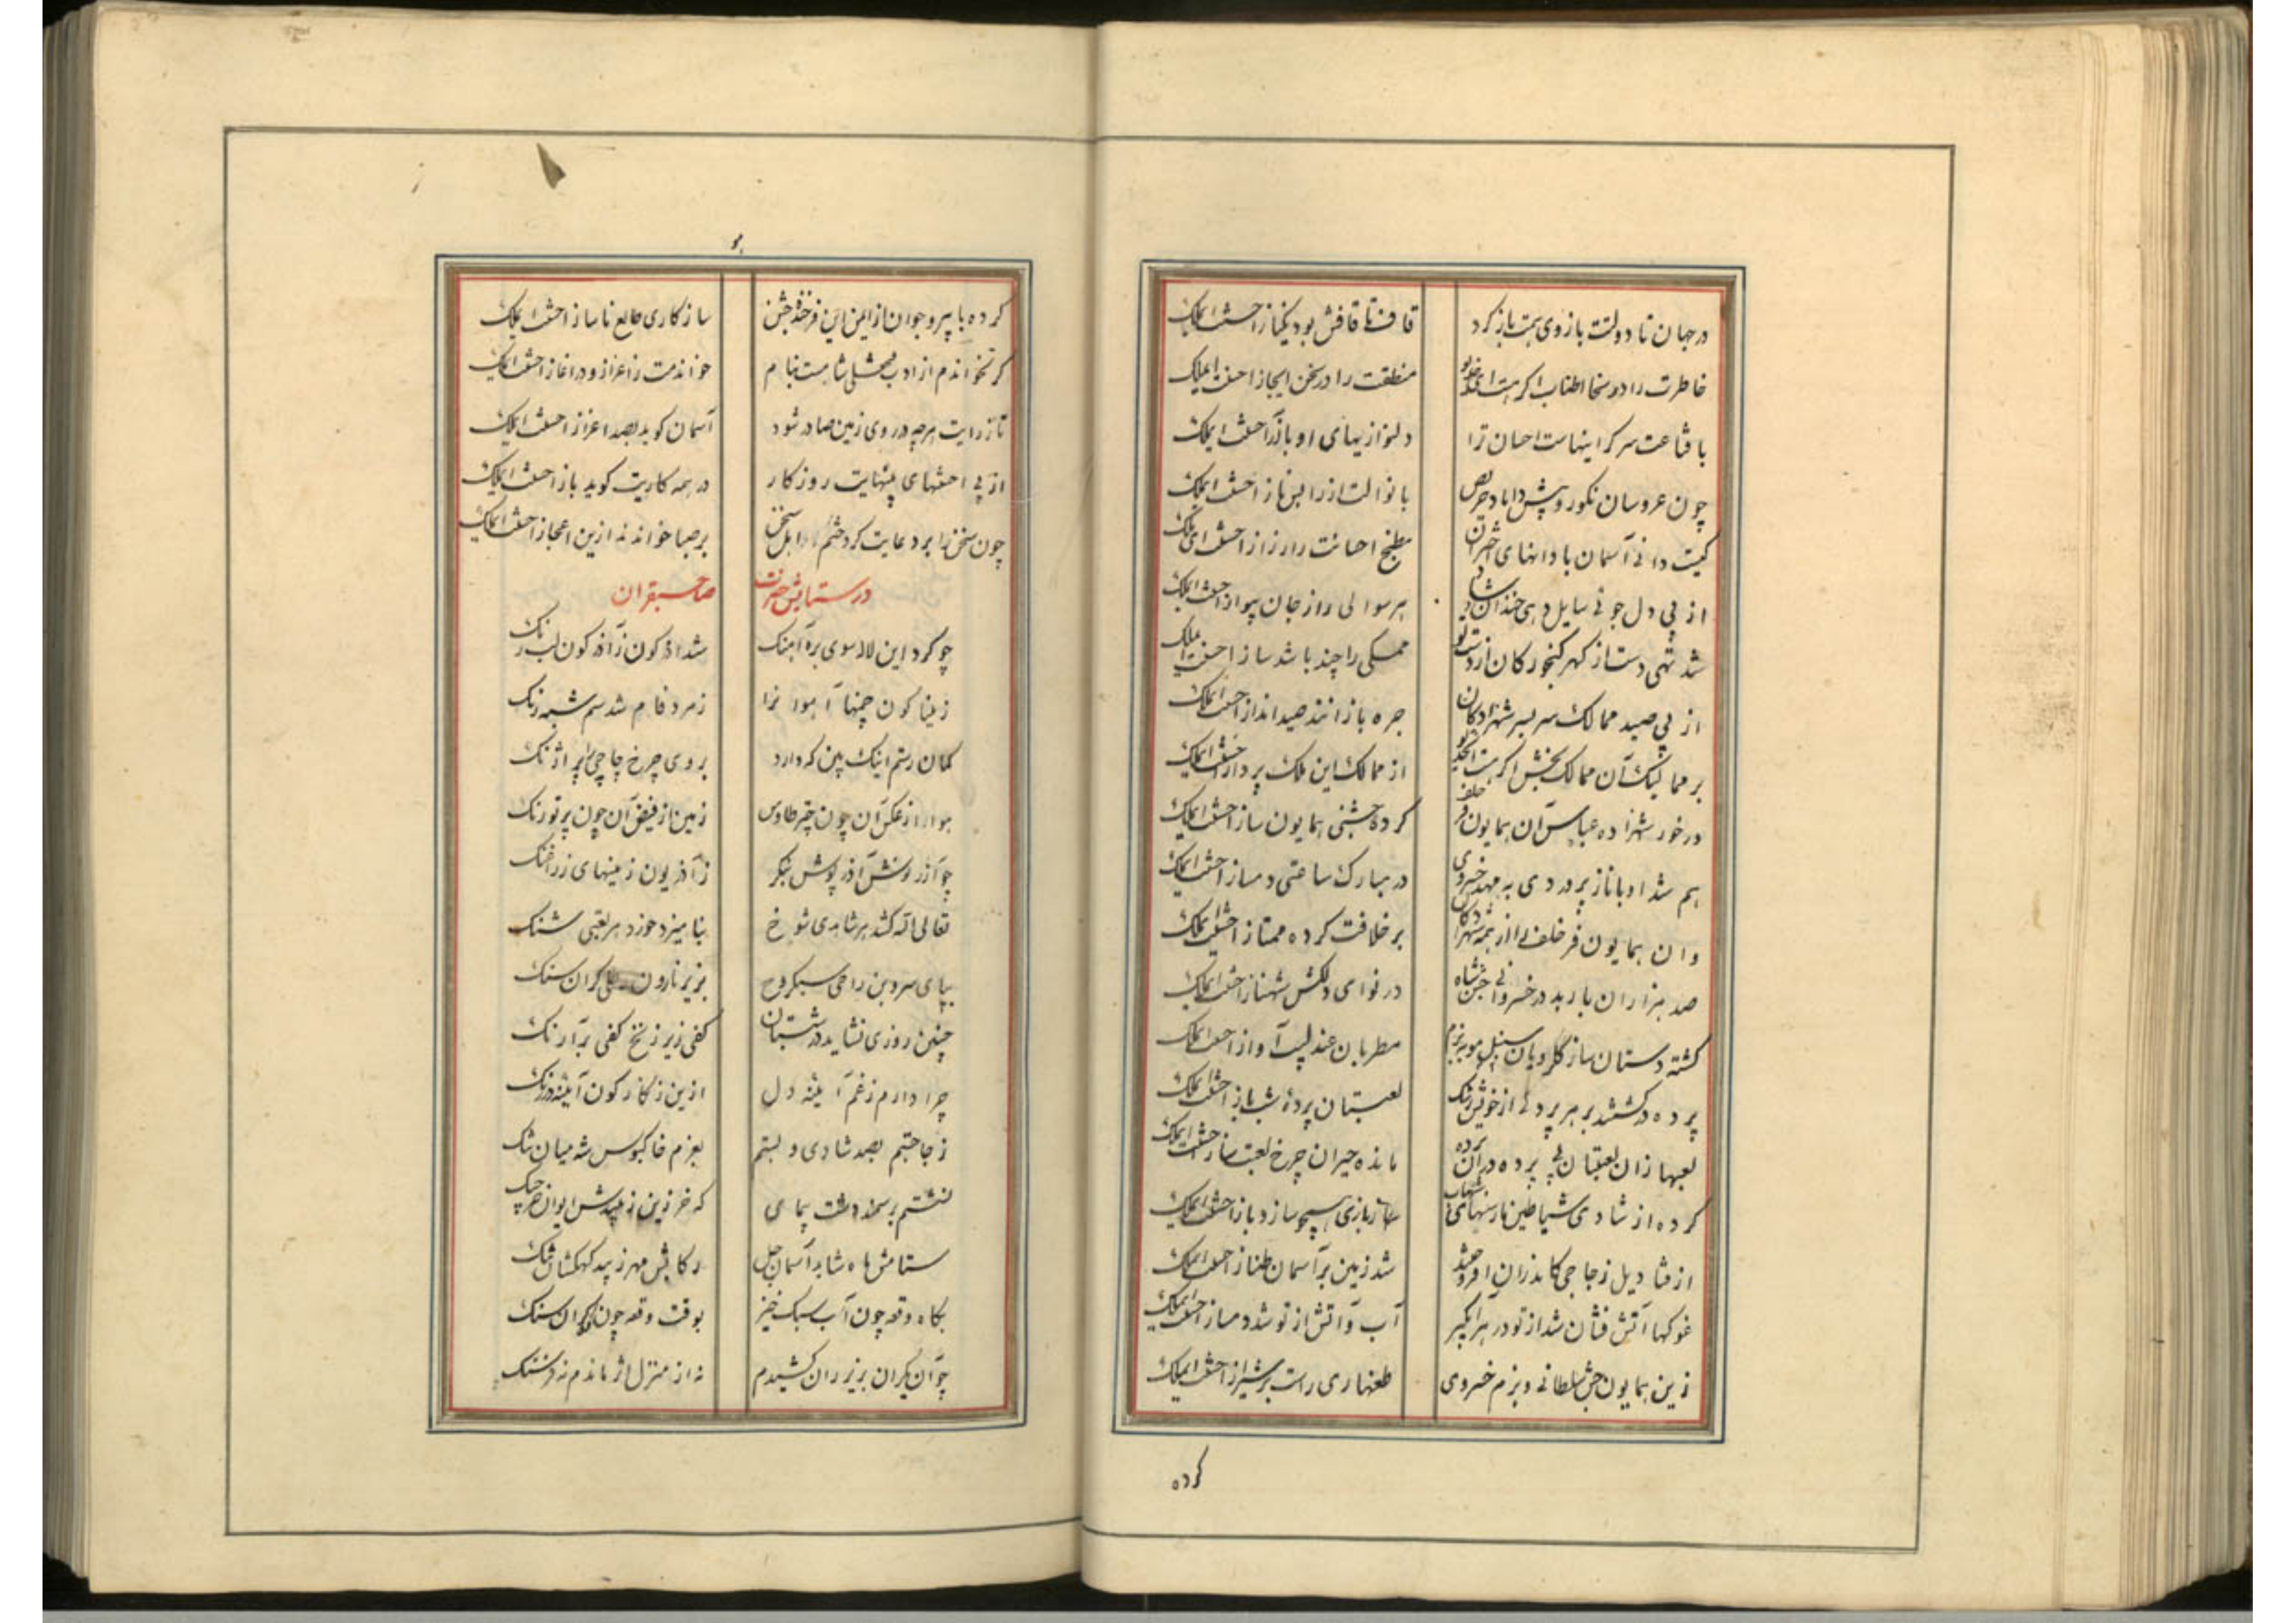 در جهان تا دولتت بازوی همت باز کرد
قاف تا قافش بود یکباز احسنت ای ملک
خاطرت را در سخا اطناب اگر هست ای خدیو
منطقت را در سخن ایجاز احسنت ای ملک
با قناعت سر گرانیهاست احسان ترا
دلنوازیهای او با آز احسنت ای ملک
چون عروسان نکورو پیش داماد حریص
با نوالت آز را بس ناز احسنت ای ملک
کیست دانی آسمان با دانهای اختران
مطبخ احسانت را رزاز احسنت ای ملک
از پی دل جوئی سایل دهی خندان
هر سوالی را ز جان احسنت ای ملک
شد تهی دست از گهر گنجور کان از دست تو
ممسکی را چند باشد ساز احسنت ای ملک
از پی صید ممالک سر بسر شهزادکان
جره بازانند صید انداز احسنت ای ملک
بر ممالیک آن ممالک بخش اگر هست
از ممالک این ملک پرداز احسنت ای ملک
در خور شهزاده عباس آن همایون فر خلف
کرده جشنی همایون ساز احسنت ای ملک
هم شد او با ناز پروردی به مهد خسروی
در مبارک ساعتی دمساز احسنت ای ملک
وان همایون فر خلف را از همه شهزادکان
بر خلافت کرده ممتاز احسنت ای ملک
صد هزاران باربد در خسروانی جشن شاه
در نوای دلکش شهناز احسنت ای ملک
کشته دستان ساز گلرویان سنبل مو به بزم
مطربان عندلیب آواز احسنت ای ملک
پرده در کشتند بر هر پرده از خوش
لعبتان پرده شب باز احسنت ای ملک
لعبها زان لعبتان بی پرده در آن پرده
مانده حیران چرخ لعبت باز احسنت ای ملک
کرده از شادی شیاطین نارسنهای شهاب
بازی احسنت ای ملک
از قنادیل زجاجی کاندران افروختند
شد زمین بر آسمان طناز احسنت ای ملک
غوکها آتش فشان شد از تو در هر آبگیر
آب و آتش از تو شد دمساز احسنت ای ملک
زین همایون جشن سلطانی و بزم خسروی
طعنها ری راست بر شیراز احسنت ای ملک
کرده
کرده با پیر و جوان از یمن این فرخنده جشن
سازکاری طالع ناساز احسنت ای ملک
گر نخواندم از ادب
خواندمت ز اعزاز و در آغاز احسنت ای ملک
تا ز رایت هرچه در روی زمین صادر شود
آسمان گوید بصد اعزاز احسنت ای ملک
از پی احسنتهای بینهایت روزگار
در همه کاریت گوید باز احسنت ای ملک
چون سخن را بر دعایت کرد ختم اهل سخن
بر صبا خواندند ازین اعجاز احسنت ای ملک
در ستایش حضرت
صاحبقران
چو کرد این لاله سوی بره آهنگ
شد آذرگون ز آذرگون لب رنگ
ز مینا گون چمنها آهوانرا
زمرد فام شد سم شبه رنگ
کمان رستم اینک بین که دارد
بروی چرخ چاچی
هوا از عکس آن چون چتر طاوس
زمین از فیض آن چون پر تورنگ
چو آذروش آذر پوش بنگر
ز آذریون زمینهای زراغنگ
تعالی الله کشد هر شاهدی شوخ
بنامیزد خورد هر لعبتی شنگ
بپای سروبن راحی سبکروح
بزیر نارون رطلی گران سنگ
چنین روزی نشاید در شبستان
کفی زیر زنخ کفی بر آرنگ
چرا دارم ز غم آیینه دل
ازین زنگارگون آیینه در زنگ
ز جا جستم بصد شادی و بستم
بعزم خاکبوس شه میان تنگ
نشستم بر سمند دشت پیمای
ستامش ماه شاید آسمان جل
رکابش مهر زیبد کهکشان تنگ
بگاه وقعه چون آب سبک خیز
بوقت وقعه چون کوه گران سنگ
چو آن یکران بزیر ران کشیدم
نه از منزل اثر ماندم نه فرسنگ